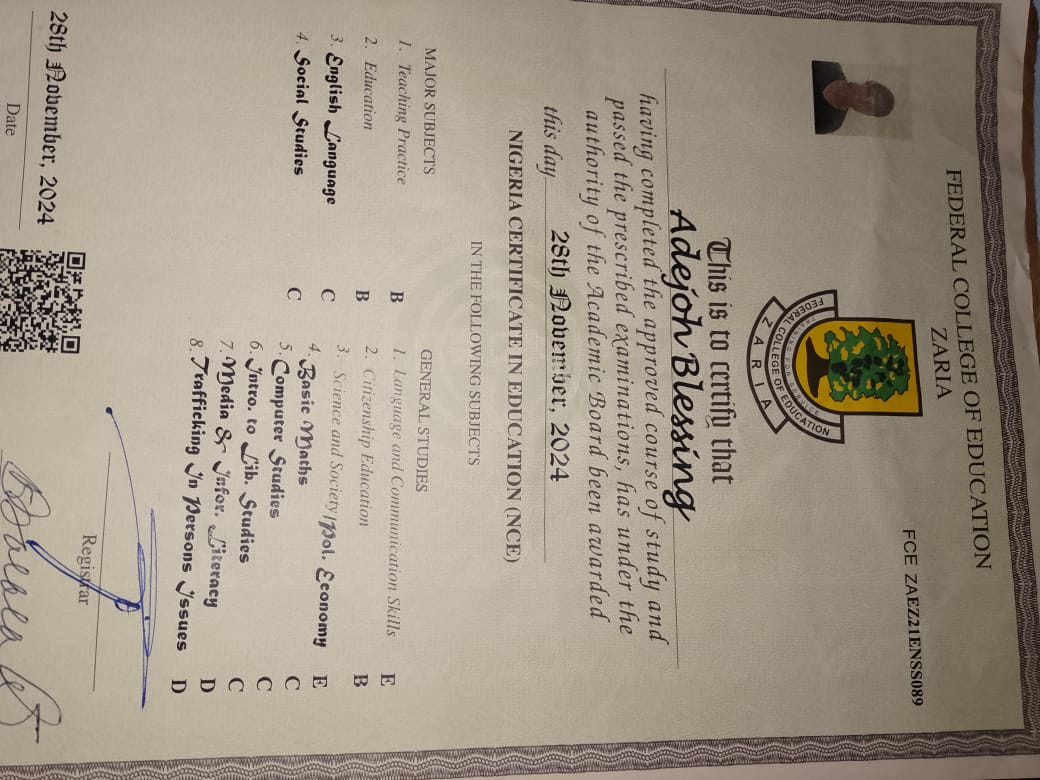 FEDERAL COLLEGE OF EDUCATION
ZARIA
FCE ZAEZ21ENSS089
FEDERAL COLLEGE OF EDUCATION
TRAINING FOR SERVICE
ZARIA
This is to certify that
Adejoh Blessing
having completed the approved course of study and
passed the prescribed examinations, has under the
authority of the Academic Board been awarded
this day 28th November, 2024
NIGERIA CERTIFICATE IN EDUCATION (NCE)
IN THE FOLLOWING SUBJECTS
MAJOR SUBJECTS
1. Teaching Practice B
2. Education B
3. English Language C
4. Social Studies C
GENERAL STUDIES
1. Language and Communication Skills E
2. Citizenship Education B
3. Science and Society/Pol. Economy E
4. Basic Maths C
5. Computer Studies C
6. Intro. to Lib. Studies C
7. Media & Infor. Literacy D
8. Trafficking In Persons Issues D
28th November, 2024
Date
Registrar